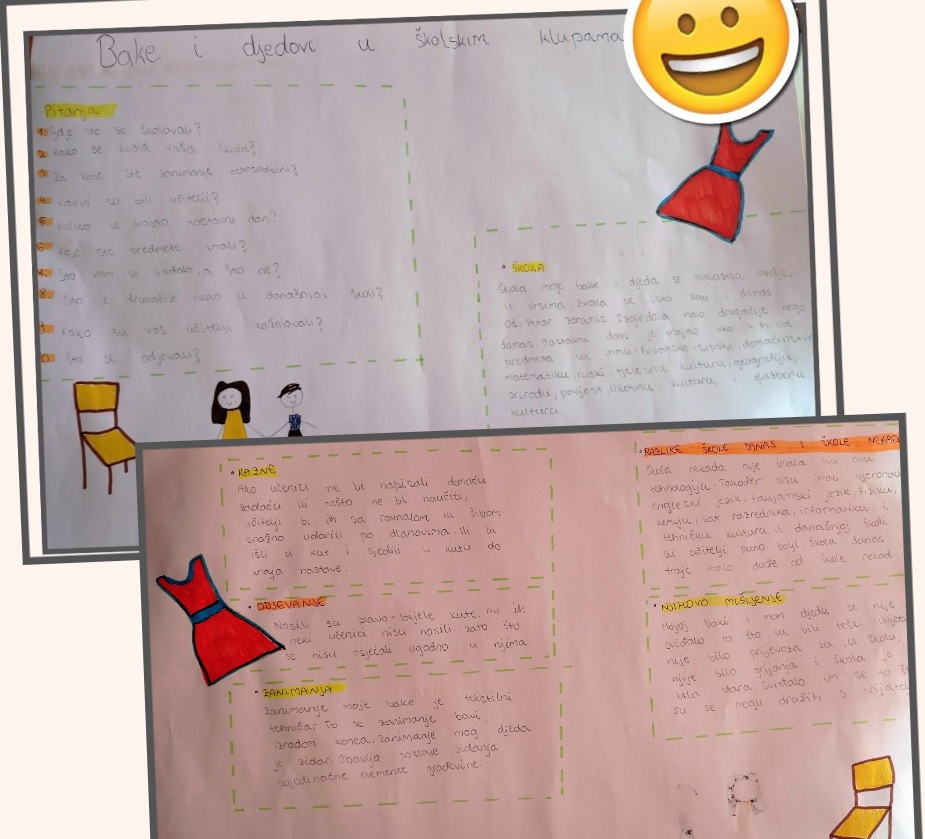 Bake i djedovi u školskim klupama
Pitanja
1. Gdje ste se školovali?
2. Kako se zvala vaša škola?
3. Za koje ste zanimanje osposobljeni?
4. Kakvi su bili učitelji?
5. Koliko je trajao nastavni dan?
6. Koje ste predmete imali?
7. Što vam se svidalo, a što ne?
8. Što je drugačije nego u današnjoj školi?
9. Kako su vas učitelji kažnjavali?
10. Što se odjevali?
• ŠKOLA
Škola moje bake i djeda se nalazila ovdje,
u Vrsima zvala se isto kao i danas
OŠ. Petar Zoranić. Izgledala malo drugačije nego
danas. Nastavni dan je trajao oko 4 h, od
predmeta su imali hrvatsko-srpski, domaćinstvo
matematiku, ruski, tjelesnu kultura, geografiju,
prirodu, povjest, likovnu kulturu, i glazbenu
kulturu.
• KAZNE
Ako učenici ne bi napisali domaću
zadaću ili nešto ne bi naučili,
učitelji bi ih sa ravnalom ili šibom
snažno udarili po dlanovima. Ili bi
išli u kut i sjedili u kutu do
kraja nastave.
• ODJEVANJE
Nosili su plavo-bijele kute, no ih
neki učenici nisu nosili zato što
se nisu osjećali ugodno u njima.
• ZANIMANJA
Zanimanje moje bake je tekstilni
tehničar. To se zanimanje bavi
izradom konca. Zanimanje mog djeda
je zidar. Obavlja poslove zidanja
pojedinačne elemente građevine.
• RAZLIKE ŠKOLE DANAS I ŠKOLE
Škola nekada nije imala svu ovu
tehnologiju. Također nisu imali vjeronauk
engleski jezik, talijanski jezik, fiziku,
kemiju, sat razrednika, informatiku i
tehničku kulturu, u današnjoj školi
su učitelji puno bolji. Škola danas
traje malo duže od škole nekad.
• NJIHOVO MIŠLJENJE
Mojoj baki i mom djedu se nije
svidalo to što su bili teški uvjeti
nije bilo prijevoza za u školu,
nije bilo grijanja i škola je
bila stara. Sviđalo im se to
su se mogu družiti s